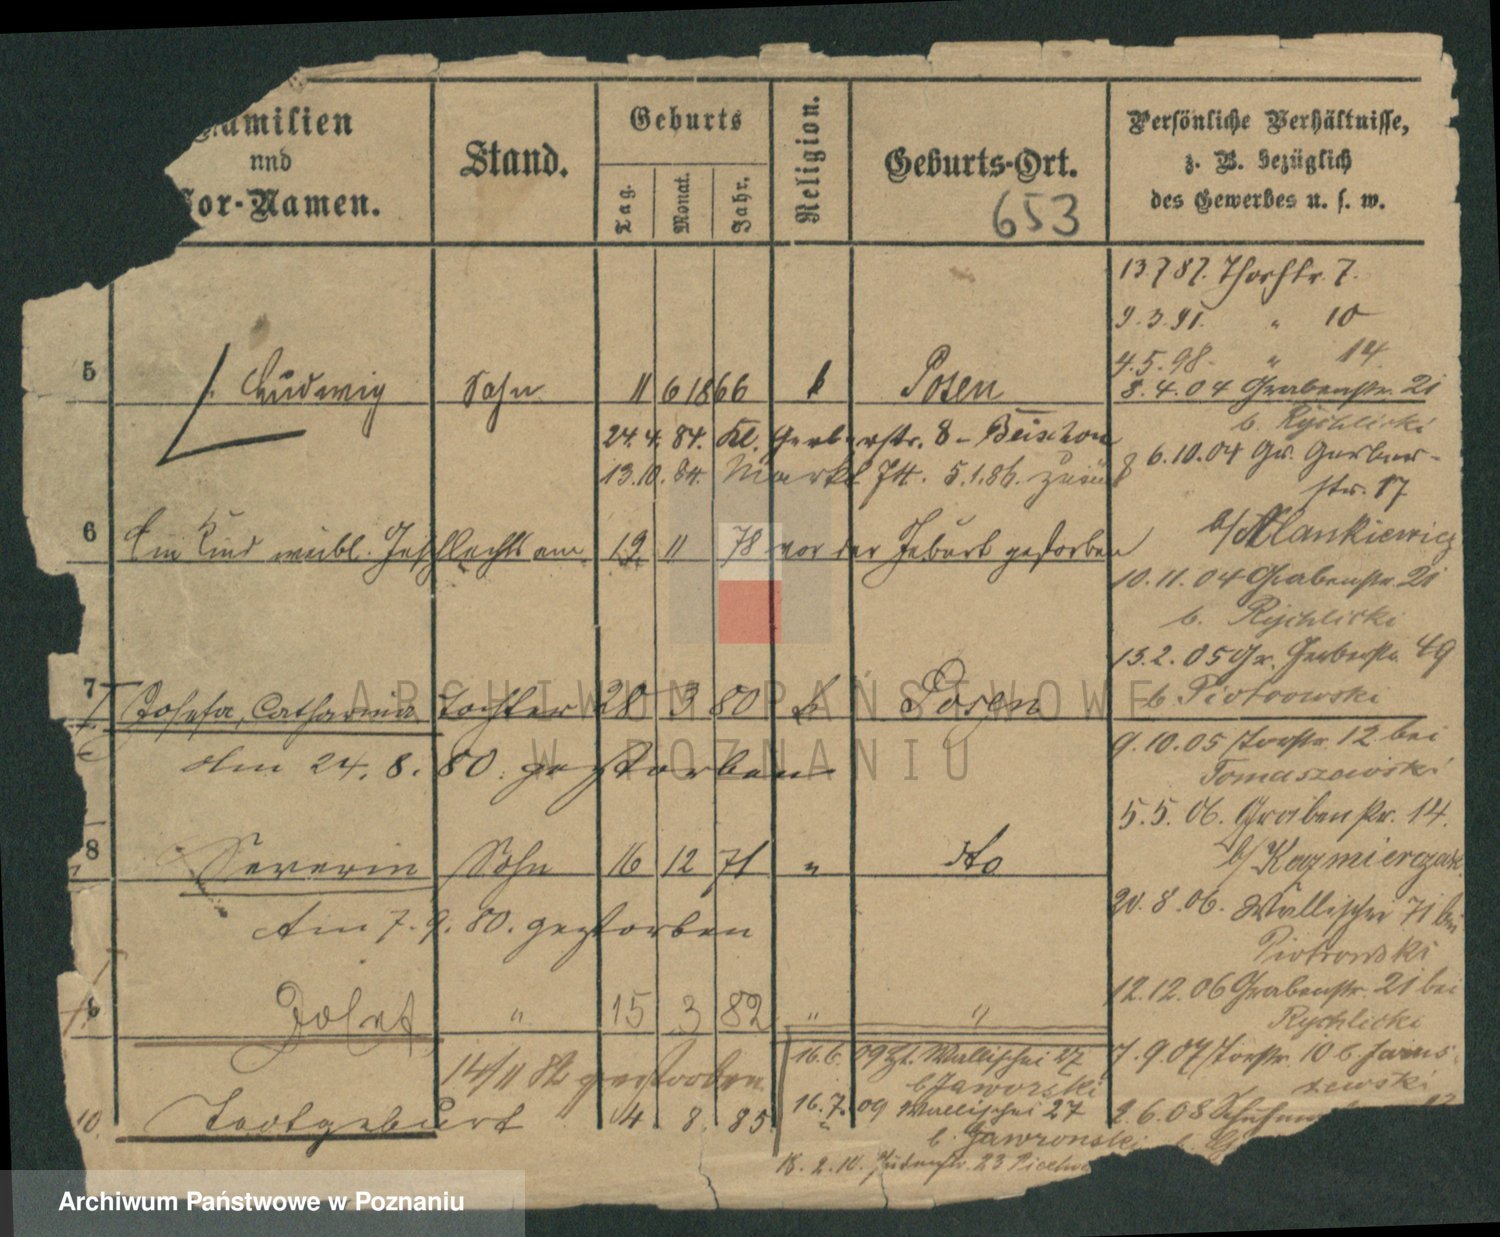 Familien
und
Vor-Namen.
Stand.
Geburts
Tag.
Monat.
Jahr.
Religion.
Geburts-Ort.
653
Persönliche Verhältnisse,
z. B. bezüglich
des Gewerbes u. s. w.
13.7.87. Thorstr. 7.
9.3.91. " 10
4.5.98. " 14.
5 Ludwig Sohn 11 6 1866 k Posen
8.4.04 Grabenstr. 21
b. Rychlicki
24.4.84. Kl. Gerberstr. 8 -
13.10.84. Markt 74. 5.1.86.
6.10.04 Gr. Gerber-
str. 17
6 Ein Kind weibl. Geschlechts am 19 11 78 vor der Geburt gestorben
b/ Mankiewicz
10.11.04 Grabenstr. 21
b. Rychlicki
13.2.05 Gr. Gerberstr. 49
b Piotrowski
7 Josefa, Catharina Tochter 28 3 80 k Posen
Am 24.8.80. gestorben
9.10.05 Torstr. 12 bei
Tomaszewski
5.5.06. Grabenstr. 14.
8 Severin Sohn 16 12 71 " dto
b/ Kazmierczak
Am 7.9.80. gestorben
20.8.06. Wallischei 71 bei
Piotrowski
12.12.06 Grabenstr. 21 bei
Rychlicki
Josef " 15 3 82 " "
14/11 82 gestorben
16.6.09 Wallischei 27
b Jaworski
7.9.07 Torstr. 10 b. Janus-
zewski
10. Todtgeburt 4 8 85
16.7.09 Wallischei 27
b. Jawronski
2.6.08
18.2.10. Judenstr. 23
ARCHIWUM PAŃSTWOWE
W POZNANIU
Archiwum Państwowe w Poznaniu